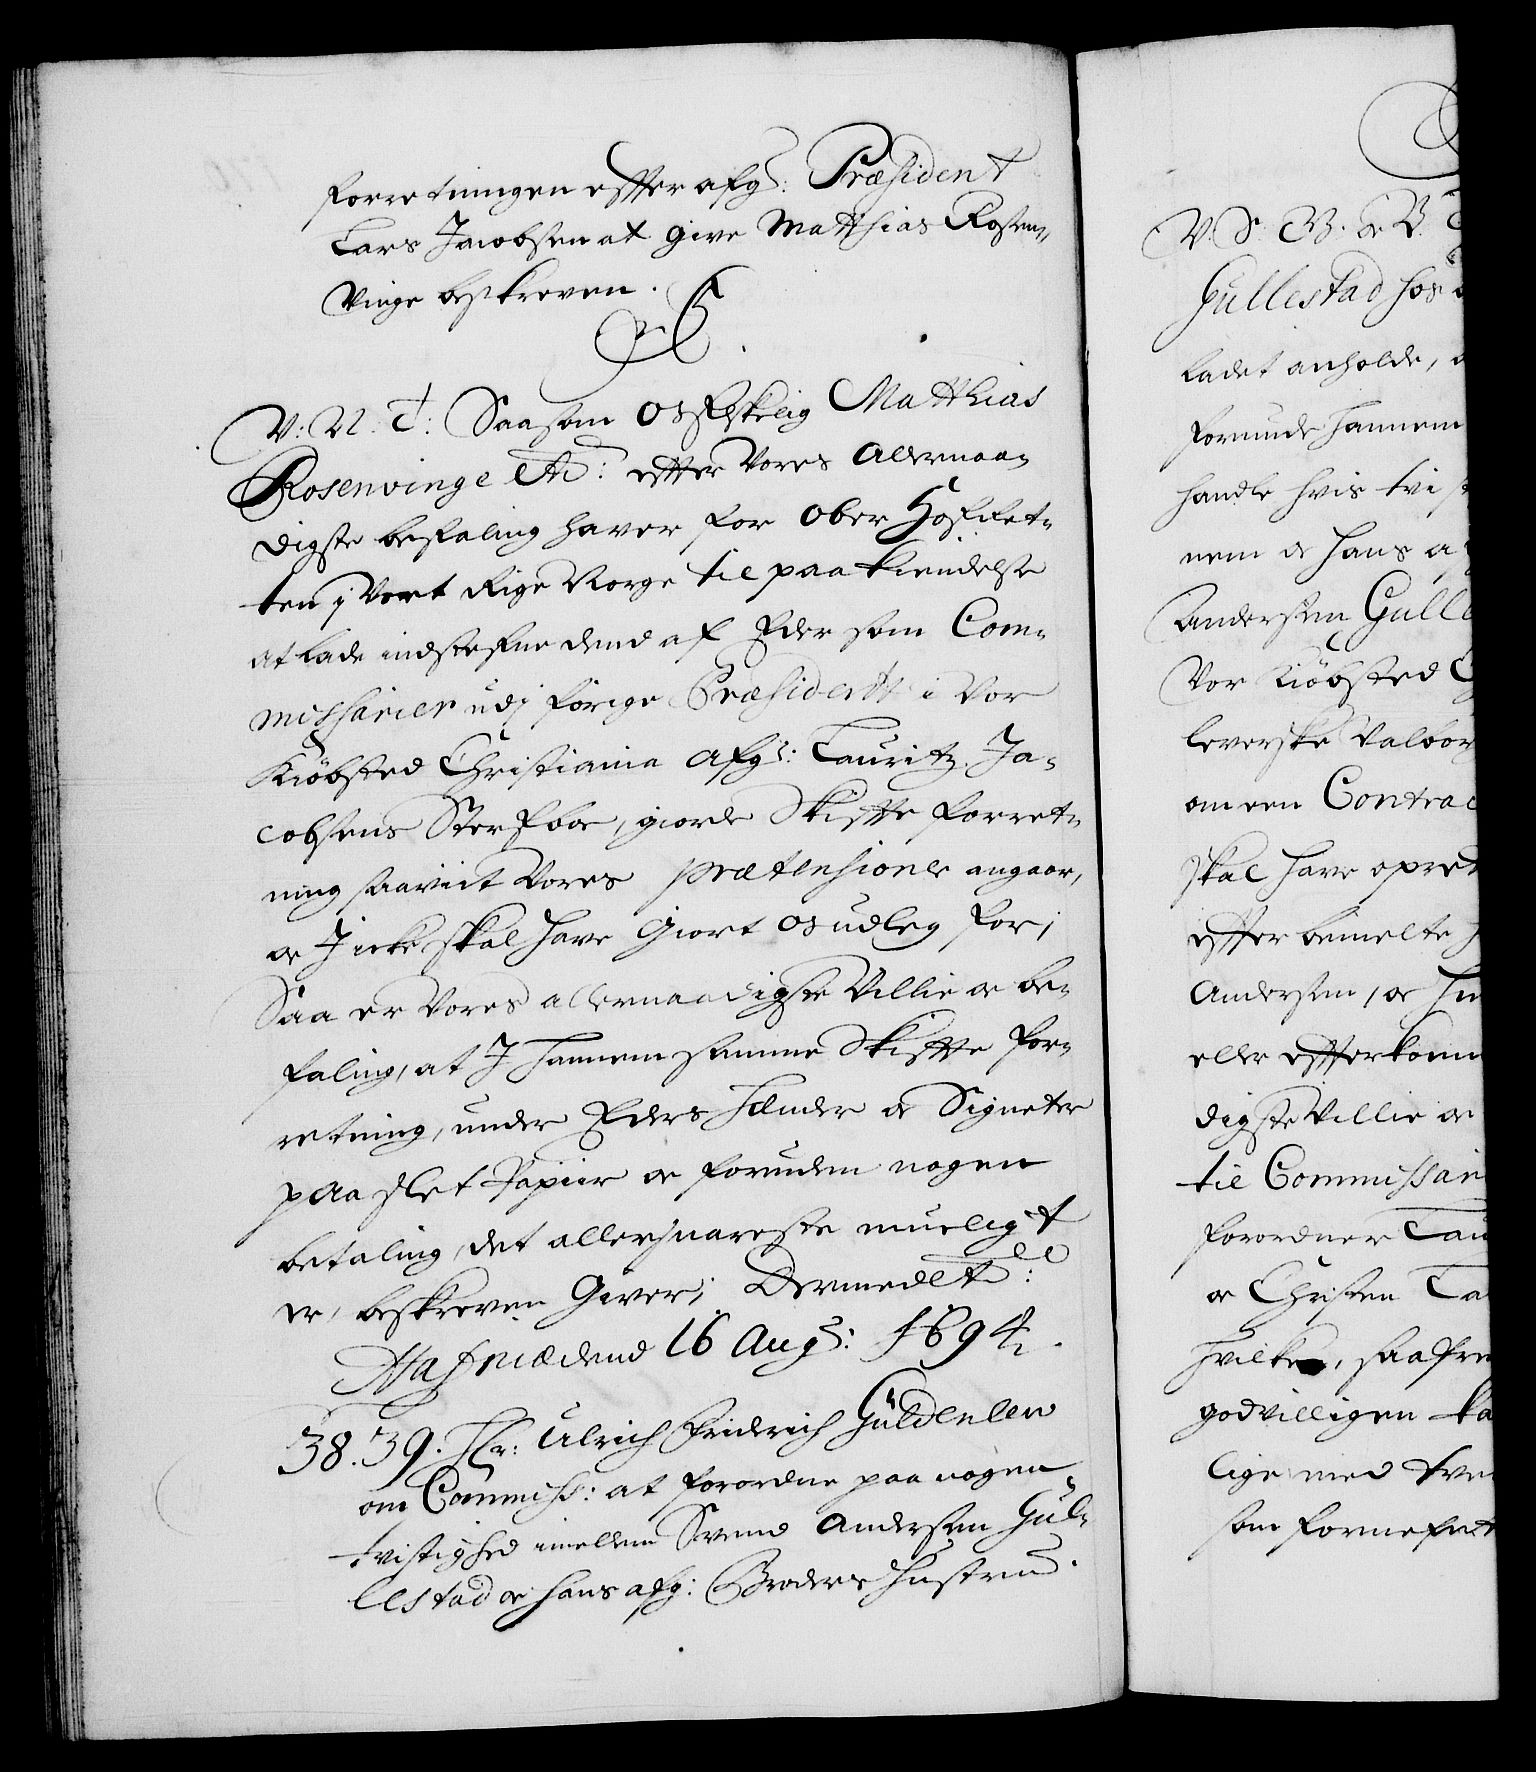 forretningen effter afg: Præsident
Lars Jacobsen at give Matthias Rosen-
vinge beskreven.
V: N. T: Saasom Os Elskelig Matthias
Rosenvinge etc: effter Vores Allernaa-
digste befaling haver for Ober Hofret-
ten i Vort Rige Norge til paakiendelse
at lade indstefne dend af Eder som Com-
missarier udj forige Præsident i Vor
Kiöbsted Christiania afg: Lauritz Ja-
cobsens Sterfboe, giorde Skiffte forret-
ning saavit Vores prætensioner angaar,
oc J icke skal have Giort Os udleg for;
Saa er Vores allernaadigste Villie oc be-
faling, at J hannem samme Skiffte for-
retning, under Eders hænder oc Signeter
paa slet Papiir oc foruden nogen
betaling, det allersnareste mueligt
er, beskreven Giver; Dermed etc:
Hafniæ dend 16 Aug: 1694.
38. 39. Hr: Ulrich Friderich Güldenlew
om Commiss: at forordne paa nogen
tvistighed imellem Svend Andersen Gul-
lestad oc hans afg: Broders Hustrue.
V. S. G. T.
Gullestad hos
ladet anholde,
forunde hannem
handle hvis tvi
nem oc hans a
Andersen Gulle
Vor Kiöbsted
leverske Valbor
om een Contrac
skal have opret
effter bemelte
Andersen, oc
eller effterkom
digste Villie oc
til Commissari
forordner Lau
oc Christen La
Hvilke, saafre
godvilligen ka
lige med tve
som fornefnt